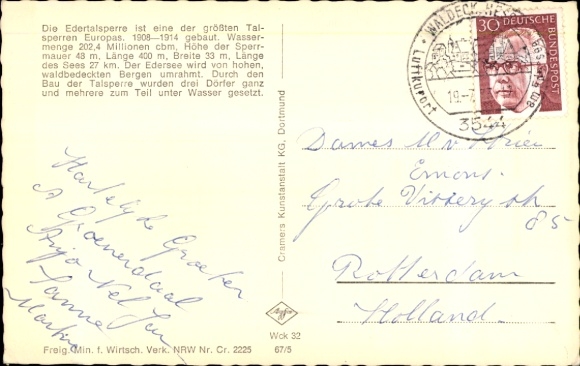 Die Edertalsperre ist eine der größten Tal-
sperren Europas. 1908—1914 gebaut. Wasser-
menge 202,4 Millionen cbm, Höhe der Sperr-
mauer 48 m, Länge 400 m, Breite 33 m, Länge
des Sees 27 km. Der Edersee wird von hohen,
waldbedeckten Bergen umrahmt. Durch den
Bau der Talsperre wurden drei Dörfer ganz
und mehrere zum Teil unter Wasser gesetzt.
30 DEUTSCHE
BUNDESPOST
WALDECK
LUFTKURORT
3544
Cramers Kunstanstalt KG, Dortmund
Dames
Grote Visserij
85
Rotterdam
Holland.
Hartelijke Groeten
Groenendaal
Nel Jan
Agfa
Wck 32
67/5
Freig. Min. f. Wirtsch. Verk. NRW Nr. Cr. 2225